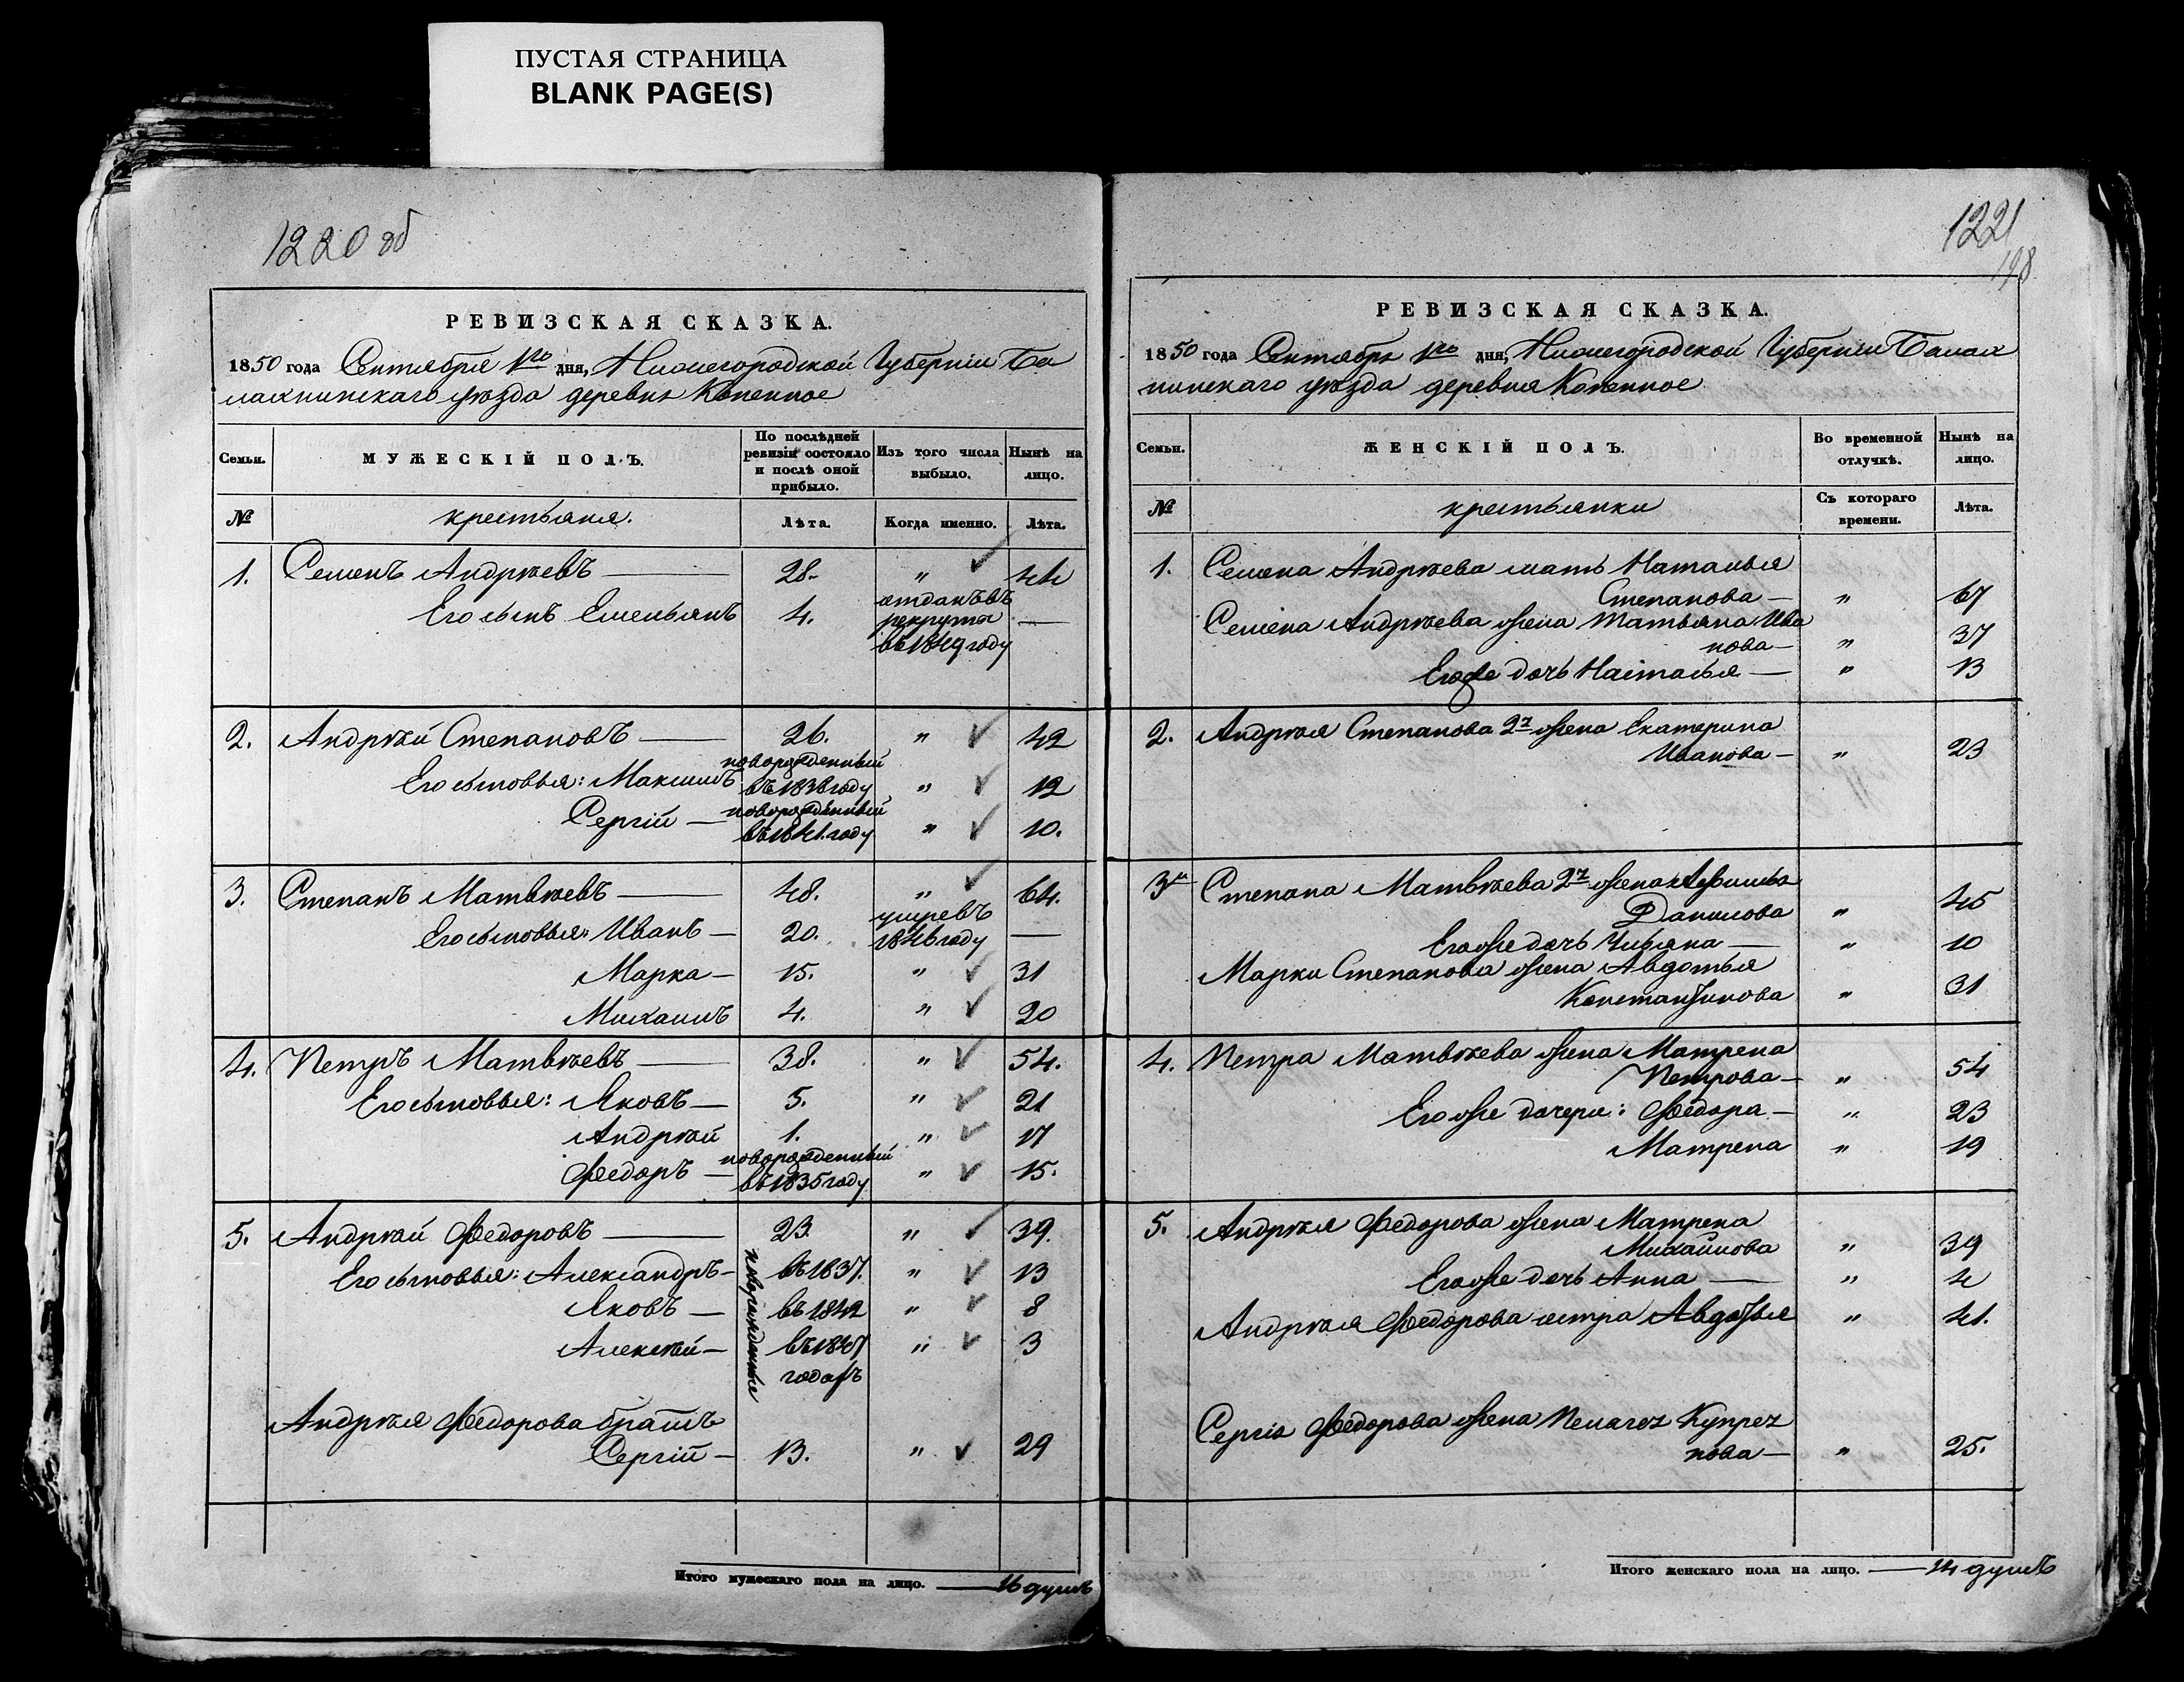 ПУСТАЯ СТРАНИЦА
BLANK PAGE(S)
1220 об
РЕВИЗСКАЯ СКАЗКА.
1850 года Сентября 1го дня, Нижегородской Губерніи Ба
лахнинскаго уѣзда деревня Копенное
Семьи.
МУЖЕСКІЙ ПОЛЪ.
По послѣдней
ревизіи состояло
и послѣ оной
прибыло.
Изъ того числа
выбыло.
Нынѣ на
лицо.
№
крестьяня.
Лѣта.
Когда именно.
Лѣта.
1. Семенъ Андреевъ — 28. „ 44
Его сынъ Емельянъ 4. отданъ въ
рекруты —
въ 1849 году
2. Андрей Степановъ — 26. „ 42
новорожденный
Его сыновья: Максимъ въ 1838 году „ 12
новорожденный
Сергій — въ 1841. году „ 10.
3. Степанъ Матвѣевъ — 48. „ 64.
Его сыновья: Иванъ — 20. умревъ
1846 году —
Марка — 15. „ 31
Михаилъ 4. „ 20
4. Петръ Матвѣевъ — 38. „ 54.
Его сыновья: Яковъ — 5. „ 21
Андрей 1. „ 17
новорожденный
Федоръ — въ 1835 году „ 15.
5. Андрей Федоровъ — 23. „ 39.
новорожденные
Его сыновья: Александръ — въ 1837. „ 13
Яковъ — въ 1842 „ 8
Алексѣй — въ 1847 „ 3
годахъ
Андрея Федорова братъ
Сергій — 13. „ 29
Итого мужескаго пола на лицо. — 16 душъ
1221
198
РЕВИЗСКАЯ СКАЗКА.
1850 года Сентября 1го дня, Нижегородской Губерніи Балах
нинскаго уѣзда деревня Копенное
Семьи.
ЖЕНСКІЙ ПОЛЪ.
Во временной
отлучкѣ.
Нынѣ на
лицо.
№
крестьянки
Съ котораго
времени.
Лѣта.
1. Семена Андреева мать Наталья
Степанова — „ 67
Семена Андреева жена Татьяна Ива
нова — „ 37
Егоже дочь Наталья — „ 13
2. Андрея Степанова 2я жена Екатерина
Иванова — „ 23
3я Степана Матвѣева 2я жена Афимья
Данилова „ 45
Егоже дочь Ульяна — „ 10
Марки Степанова жена Авдотья
Константинова „ 31
4. Петра Матвѣева жена Матрена
Петрова — „ 54
Егоже дочери: Федора — „ 23
Матрена „ 19
5. Андрея Федорова жена Матрена
Михайлова „ 39
Егоже дочь Анна — „ 4
Андрея Федорова сестра Авдотья „ 41.
Сергія Федорова жена Пелагея Купрея
нова — „ 25.
Итого женскаго пола на лицо. — 14 душъ